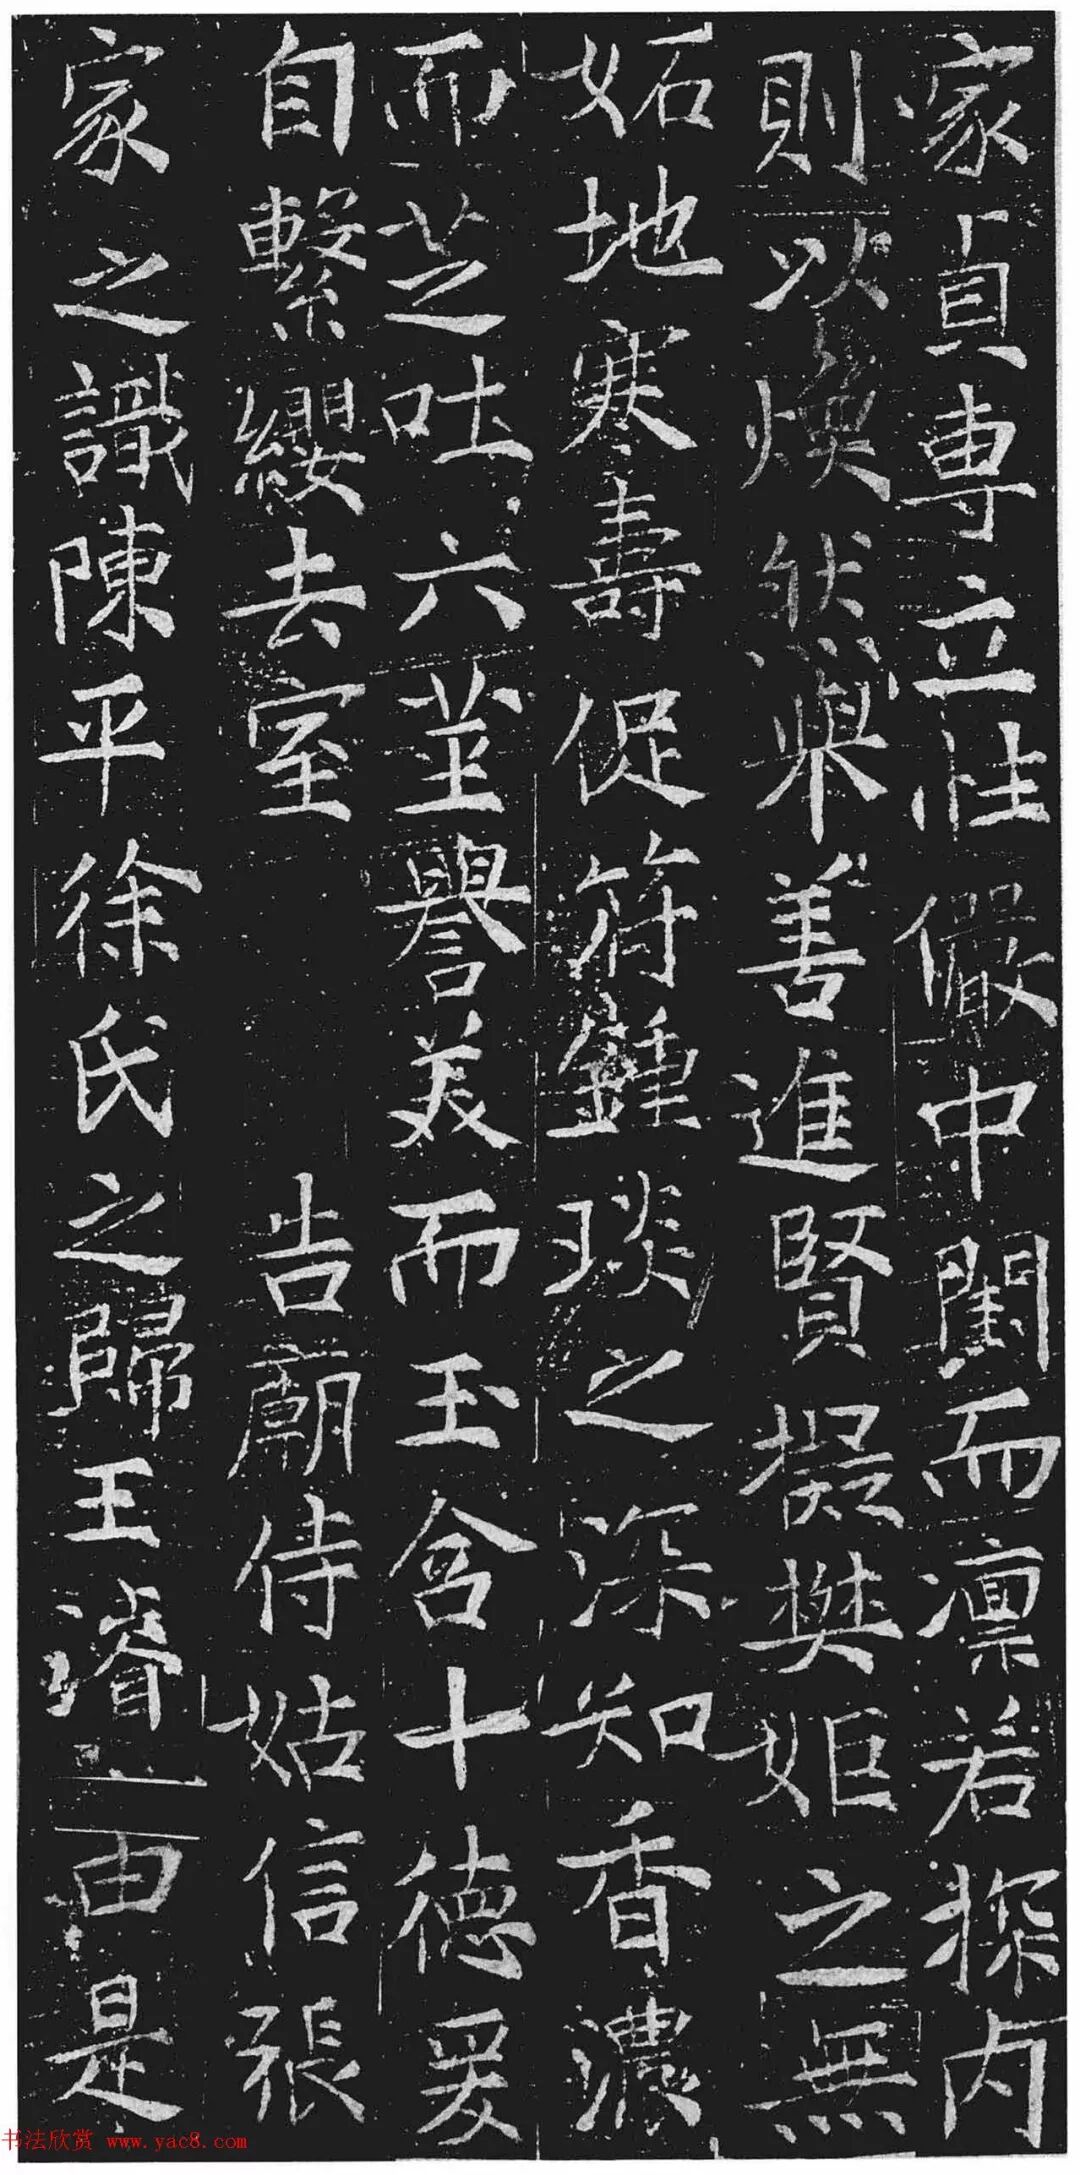 家貞專立性儼中閨而凛若探丙
則以煥然舉善進賢擬樊姬之無
妬地寒壽促符鍾琰之深知香濃
而芝吐六莖譽美而玉含十德爰
自繫纓去室 告廟侍姑信張
家之識陳平徐氏之歸王濬由是
书法欣赏 www.yac8.com